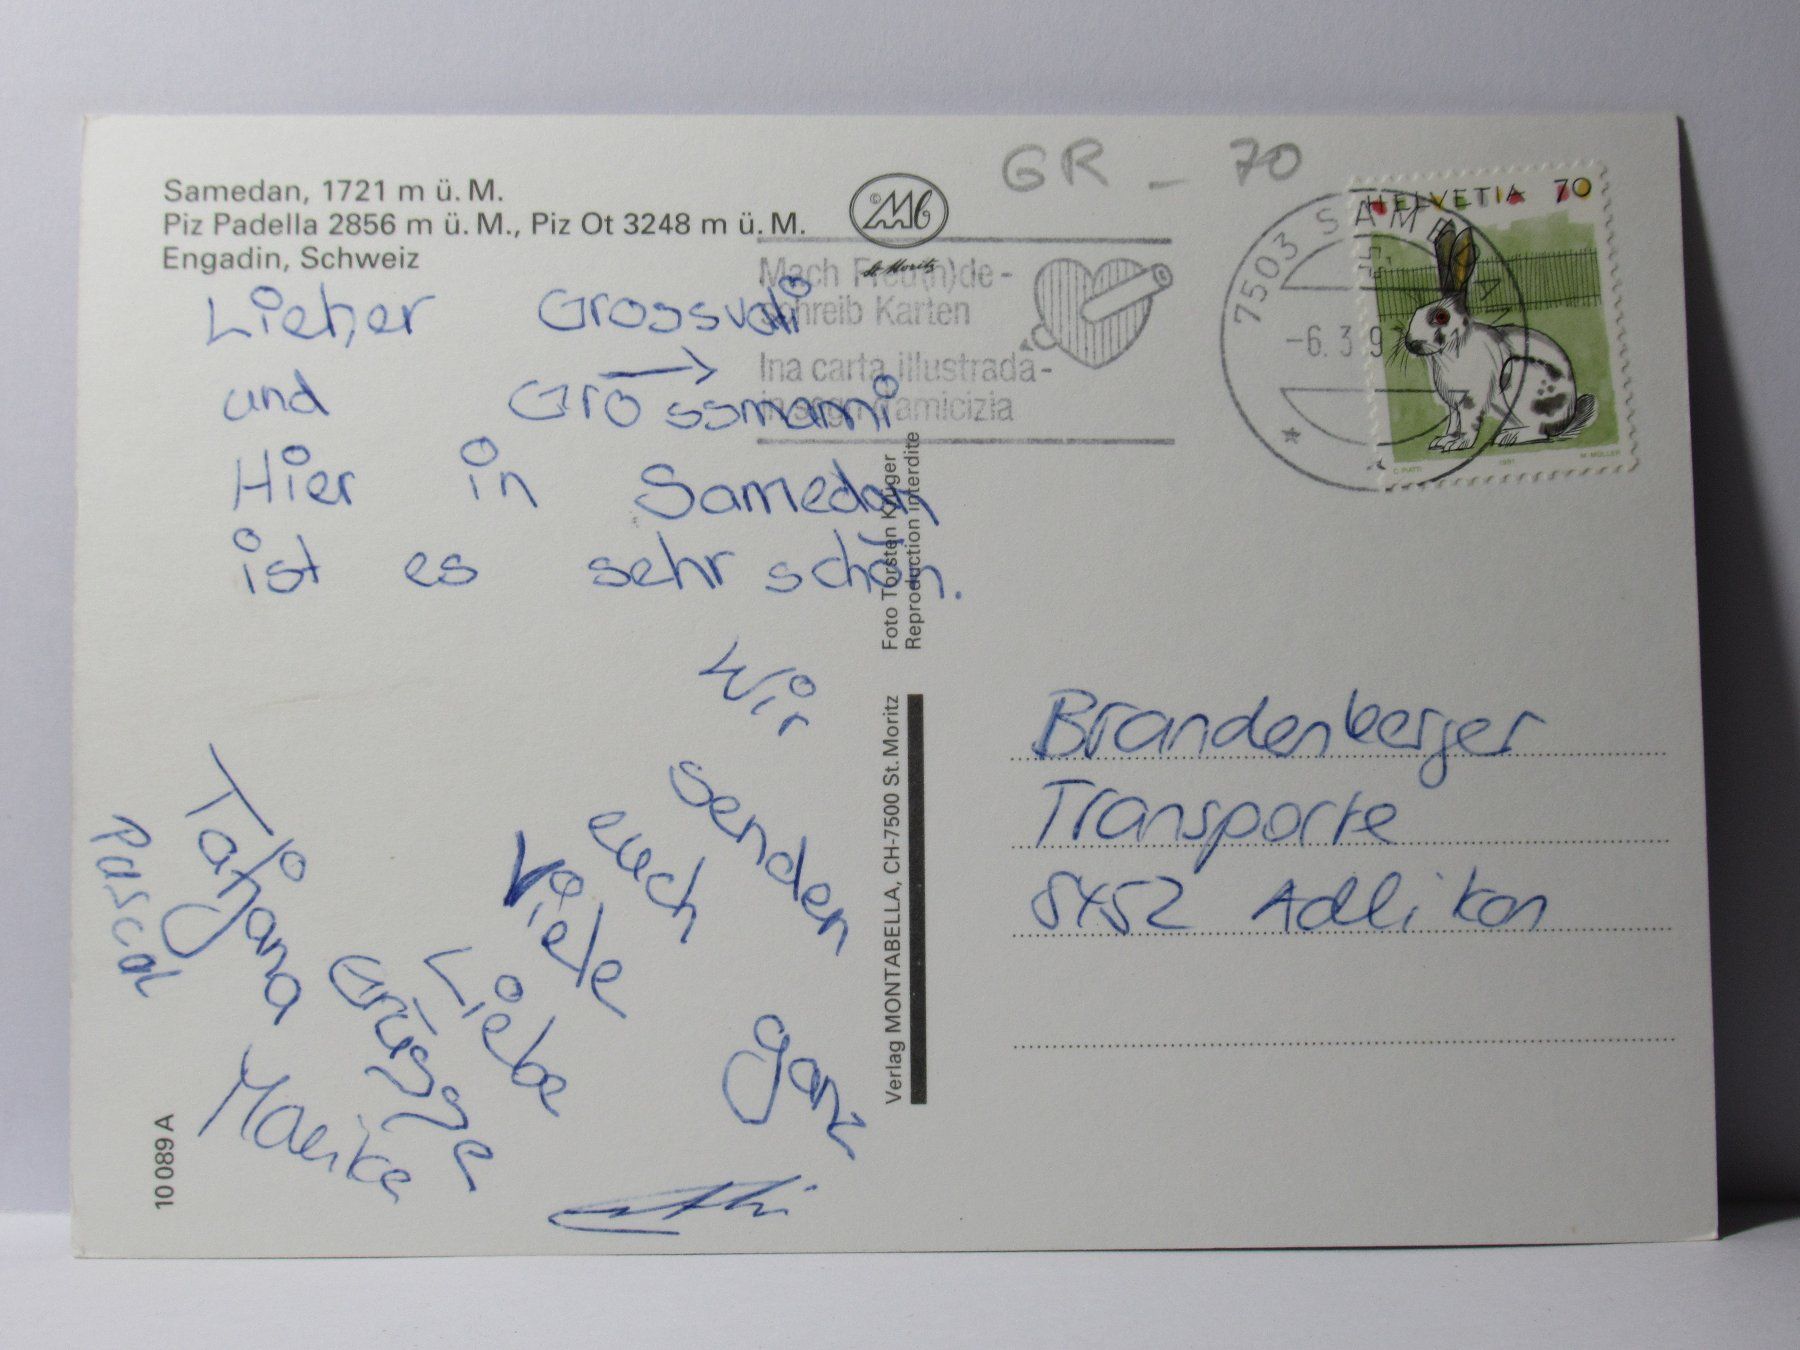 Samedan, 1721 m ü. M.
Piz Padella 2856 m ü. M., Piz Ot 3248 m ü. M.
Engadin, Schweiz
Mb
St. Moritz
GR - 70
HELVETIA 70
7503 SAMEDAN
-6. 3. 9
C. PIATTI 1991 M. MÜLLER
Mach Freu(n)de -
schreib Karten
Ina carta illustrada -
in segn d'amicizia
Lieber Grossvati
und Grossmami
Hier in Samedan
ist es sehr schön.
Wir
senden
euch
ganz
Viele
Liebe
Grüsse
Tatjana
Pascal
Marika
Foto Torsten Krüger
Reproduction interdite
Verlag MONTABELLA, CH-7500 St. Moritz
10 089 A
Brandenberger
Transporte
8452 Adlikon